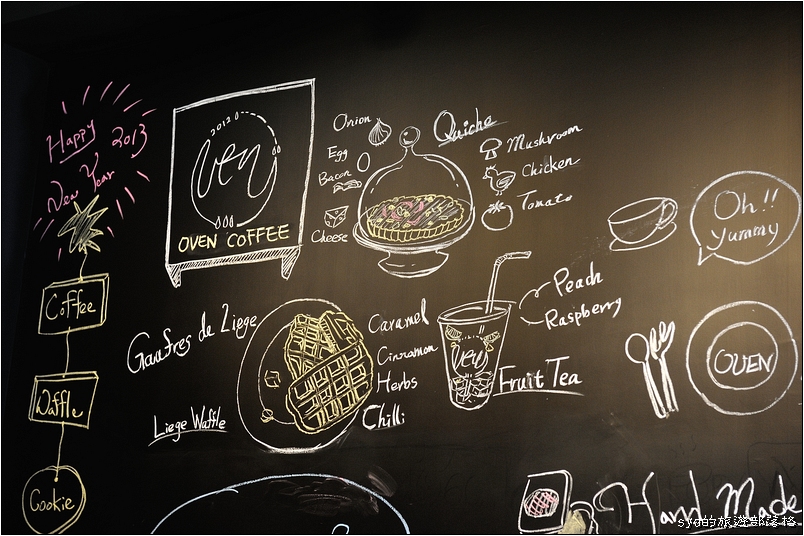 Happy 2013
New Year
Coffee
Waffle
Cookie
2012
Ven
OVEN COFFEE
Quiche
Onion
Egg
Bacon
Cheese
Mushroom
Chicken
Tomato
Oh!!
yummy
Gaufres de Liege
Liege Waffle
Caramel
Cinnamon
Herbs
Chilli
Ven
Peach
Raspberry
Fruit Tea
OVEN
Hand Made
syd的旅遊部落格